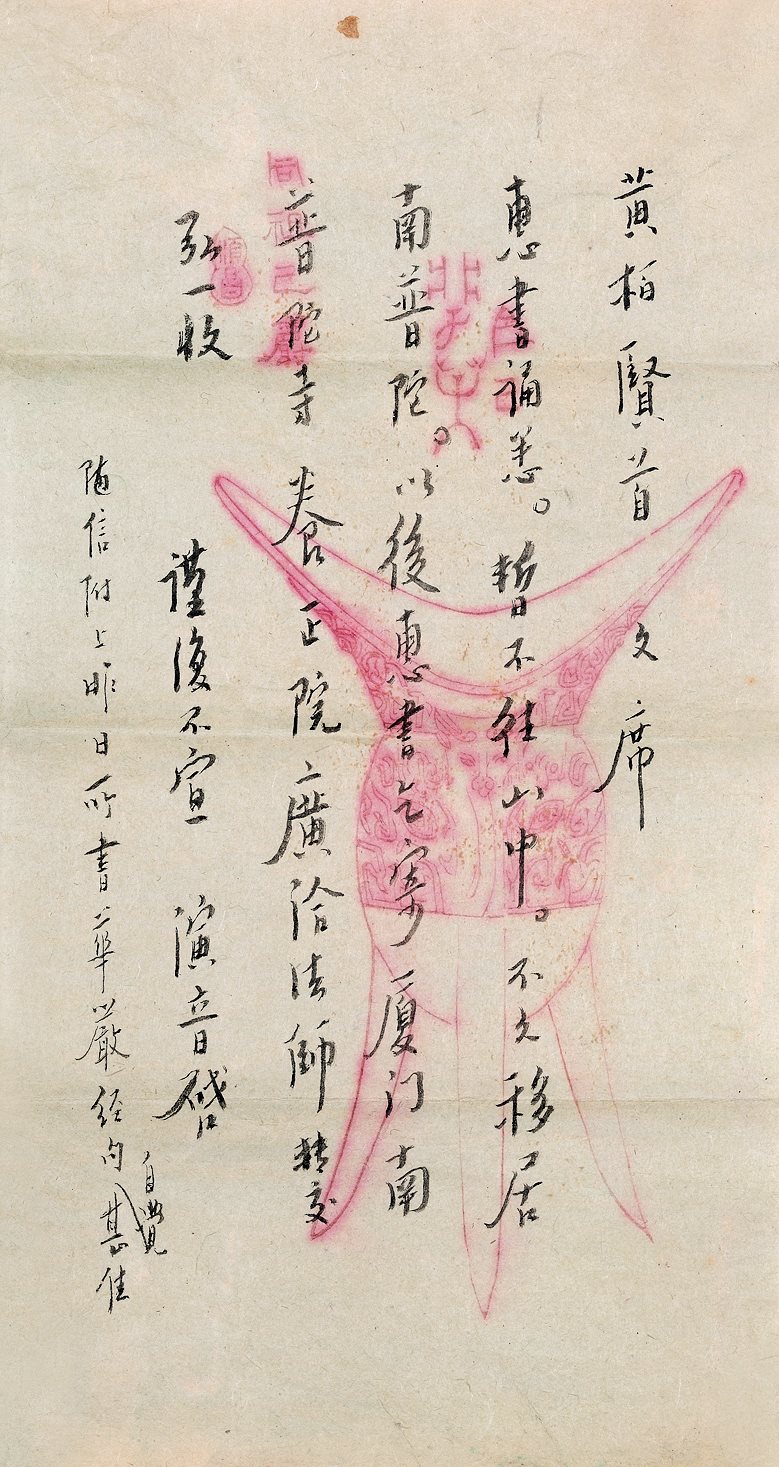 黃柏賢首文席
惠書誦悉。暫不往山中。不久移居
南普陀。以後惠書乞寄厦门南
普陀寺養正院廣洽法師转交
弘一收
謹復不宣 演音啓
随信附上昨日所書華嚴經句自覺甚佳